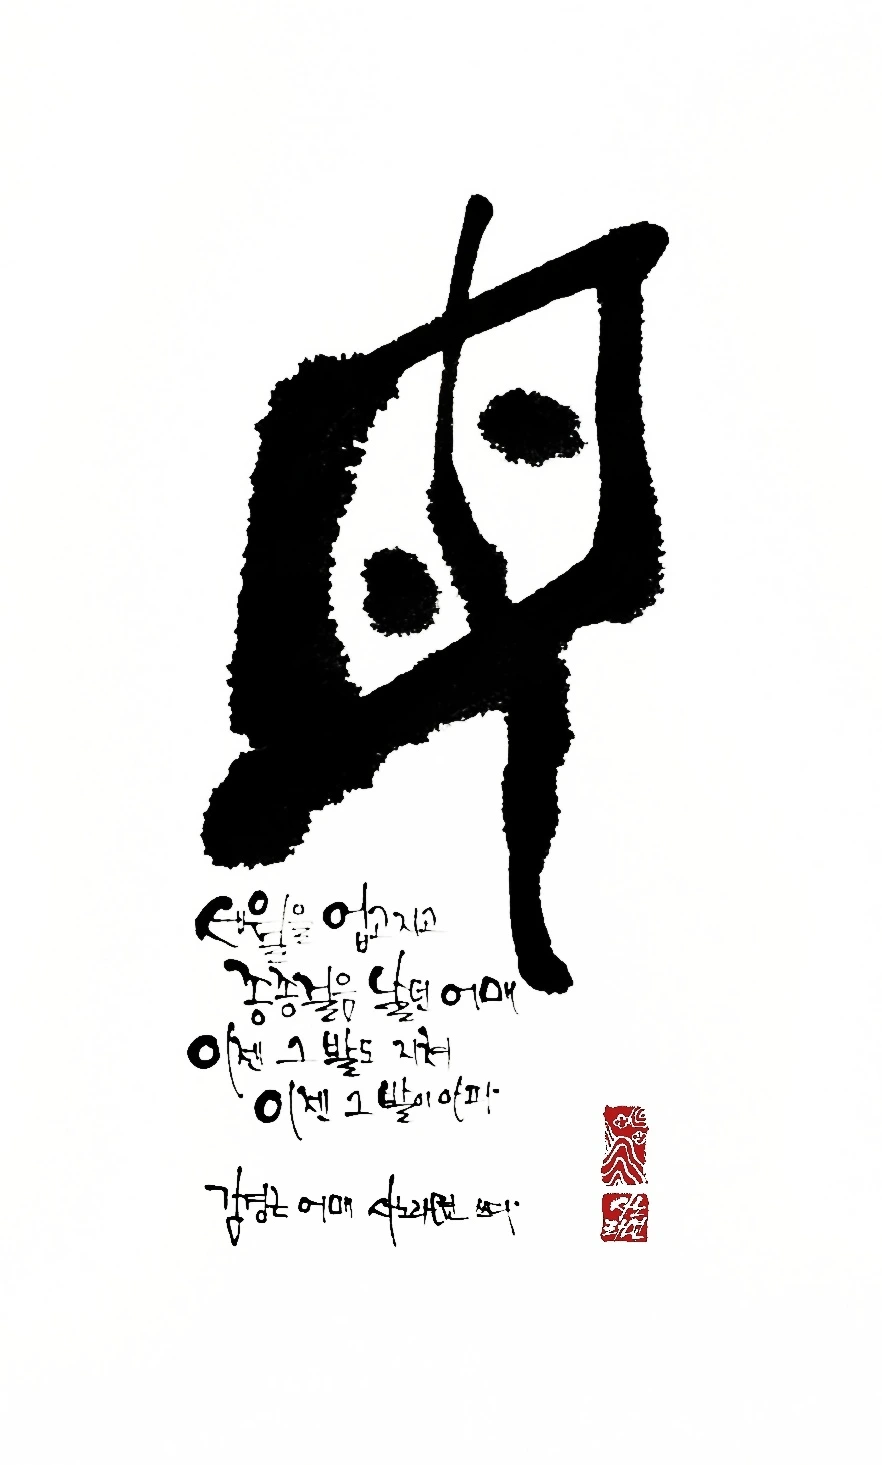 母
세월을 업고 지고
종종걸음 날던 어매
이젠 그 발도 지쳐
이젠 그 발이 아파
김경근 어매 산노래 쓰다